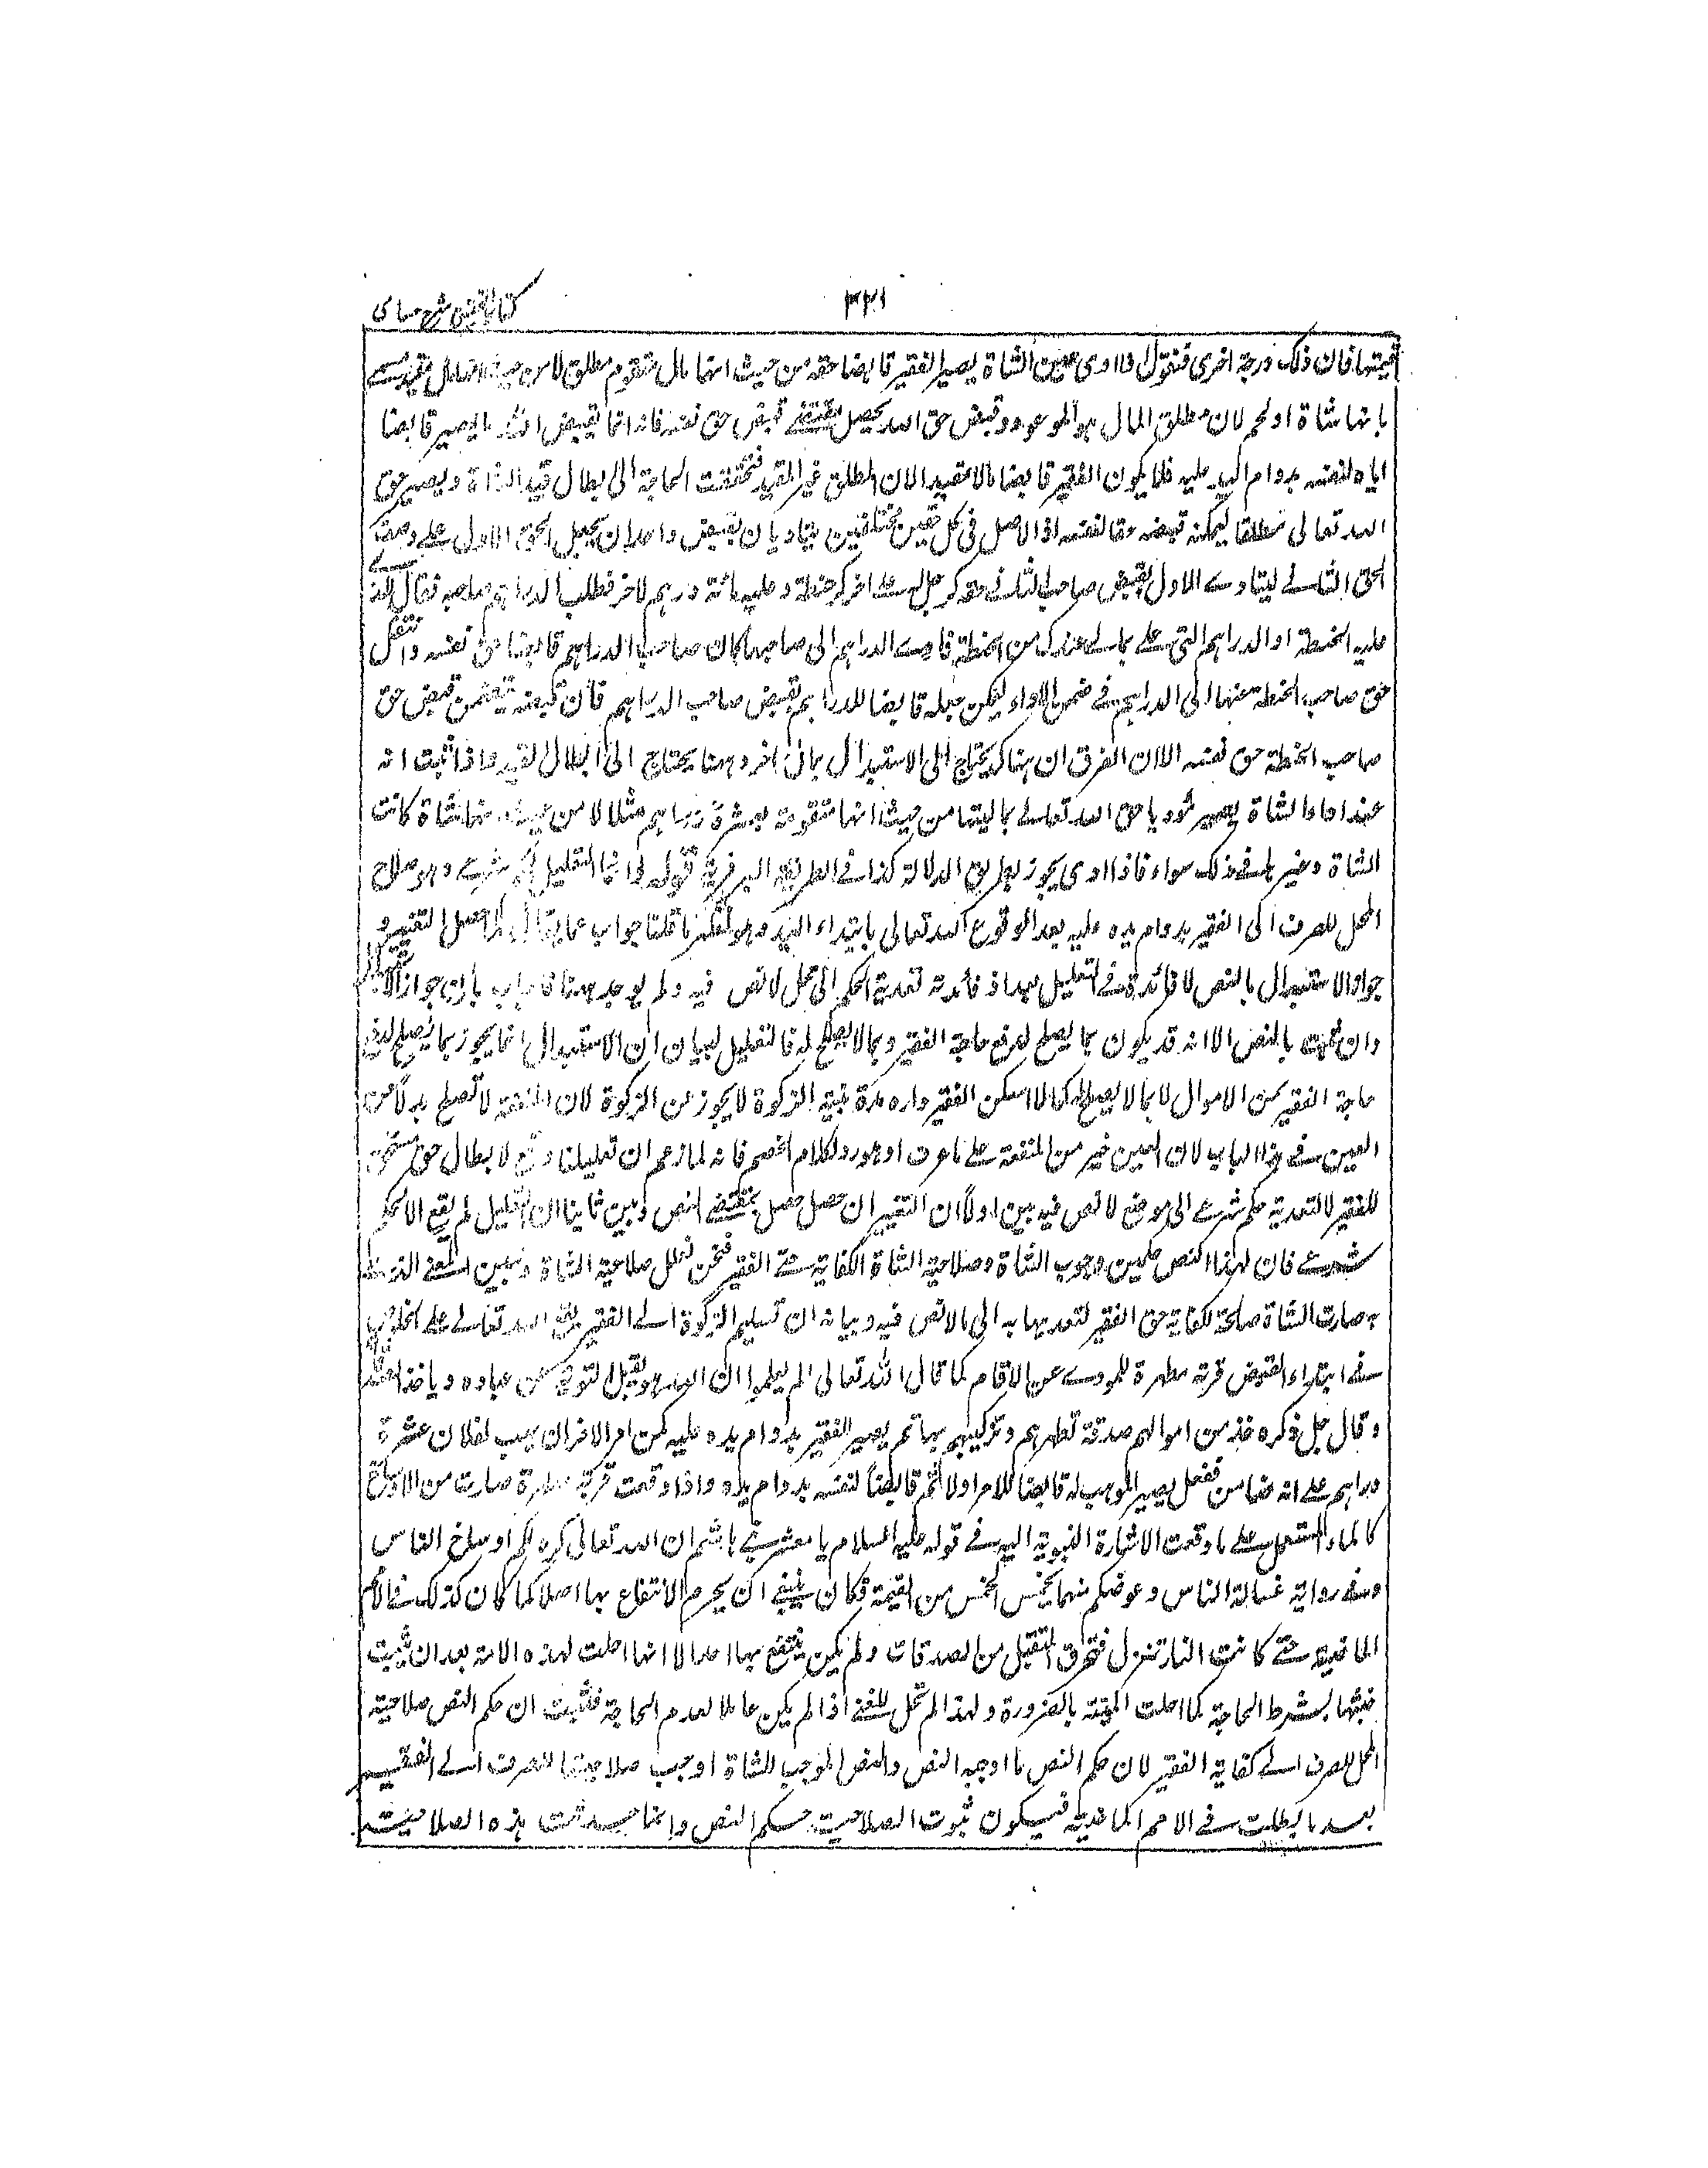 كتاب التحقيق شرح حسامى
٣٢١
قيمتها فان ذلك درجة اخرى فنقول اذا ادى عين الشاة يصير الفقير قابضا حقه من حيث انها مال متقوم مطلق لا من حيث انها مال مقيد
بانها شاة او لحم لان مطلق المال هو الموعود وقبض حق الله يحصل بمقتضى قبض حق نفسه فانه انما يقبض الله يصير قابضا
اياه لنفسه بدوام اليد عليه فلا يكون الفقير قابضا بالمقيد الا ان المطلق غير المقيد فتحققت الحاجة الى ابطال قيد الشاة ويصير حق
الله تعالى مطلقا ليمكنه قبضه حقا لنفسه اذ الاصل فى كل حقين مختلفين يتاديان بقبض واحد ان يجعل الحق الاول على وصف
الحق الثانى ليتادى الاول بقبض صاحب الثانى حقه كرجل له على اخر كر حنطة وعليه مائة درهم لاخر فطلب الدراهم صاحبه فقال للذى
عليه الحنطة اد الدراهم التى على بمالى عندك من الحنطة فادى الدراهم الى صاحبها كان صاحب الدراهم قابضا حق نفسه وانتقل
حق صاحب الحنطة عنها الى الدراهم فى ضمن الاداء ليمكن جعله قابضا للدراهم بقبض صاحب الدراهم فان قبضه يتضمن قبض حق
صاحب الحنطة حق نفسه الا ان الفرق ان هناك يحتاج الى الاستبدال بمال اخر وههنا يحتاج الى ابطال القيد واذا ثبت انه
عند اداء الشاة يصير مؤديا حق الله تعالى بماليتها من حيث انها متقومة بعشرة دراهم مثلا لا من حيث انها شاة كانت
الشاة وغيرها فى ذلك سواء فاذا ادى يجوز بطريق الدلالة كذا فى الطريقة البرغرية قوله وانما التعليل لحكم شرعى وهو صلاح
المحل للصرف الى الفقير بدوام يده عليه بعد الوقوع لله تعالى بابتداء اليد وهو نظير ما قلنا جواب عما يقال لما حصل التغيير و
جواز الاستبدال بالنص لا فائدة فى التعليل بعد اذ فائدته تعدية الحكم الى محل لا نص فيه ولم يوجد ههنا فاجاب بان جواز الاستبدال
وان ثبت بالنص الا انه قد يكون بما يصلح لدفع حاجة الفقير وبما لا يصلح له فالتعليل لبيان ان الاستبدال انما يجوز بما يصلح لدفع
حاجة الفقير من الاموال لا بما لا يصلح له كما لو اسكن الفقير داره مدة بنية الزكوة لا يجوز عن الزكوة لان المنفعة لا تصلح بدلا عن
العين فى هذا الباب لان العين خير من المنفعة على ما عرف او هو رد لكلام الخصم فانه لما زعم ان تعليلنا وقع لابطال حق مستحق
للفقير لا لتعدية حكم شرعى الى موضع لا نص فيه بين اولا ان التغيير ان حصل حصل بمقتضى النص وبين ثانيا ان التعليل لم يقع الا لحكم
شرعى فان لهذا النص حكمين وجوب الشاة وصلاحية الشاة لكفاية حق الفقير فنحن نعلل صلاحية الشاة ونبين المعنى الذى
به صارت الشاة صالحة لكفاية حق الفقير لتعديها به الى ما لا نص فيه وبيانه ان تسليم الزكوة الى الفقير يقع لله تعالى على الخلوص
فى ابتداء القبض قربة مطهرة للمؤدى عن الاثام كما قال الله تعالى الم يعلموا ان الله هو يقبل التوبة عن عباده وياخذ الصدقات
وقال جل ذكره خذ من اموالهم صدقة تطهرهم وتزكيهم بها ثم يصير للفقير بدوام يده عليه كمن امر الاخر ان يهب لفلان عشرة
دراهم على انه ضامن ففعل يصير الموهب له قابضا للامر اولا ثم قابضا لنفسه بدوام يده واذا وقعت قربة مطهرة صارت من الاوساخ
كالماء المستعمل على ما وقعت الاشارة النبوية اليه فى قوله عليه السلام يا معشر بنى هاشم ان الله تعالى كره لكم اوساخ الناس
وفى رواية غسالة الناس وعوضكم منها بخمس الخمس من الغنيمة فكان ينبغى ان يحرم الانتفاع بها اصلا كما كان كذلك فى الامم
الماضية حتى كانت النار تنزل فتحرق المتقبل من الصدقات ولم يكن ينتفع بها احد الا انها احلت لهذه الامة بعد ان ثبت
خبثها بشرط الحاجة كما احلت الميتة بالضرورة ولهذا لم تحل للغنى اذا لم يكن عاملا لعدم الحاجة فثبت ان حكم النص صلاحية
المحل للصرف الى كفاية الفقير لان حكم النص ما اوجبه النص والنص الموجب للشاة اوجب صلاحيتها للصرف الى الفقير
بعد ما بطلت فى الامم الماضية فيكون ثبوت الصلاحية حكم النص وانما حدثت هذه الصلاحية